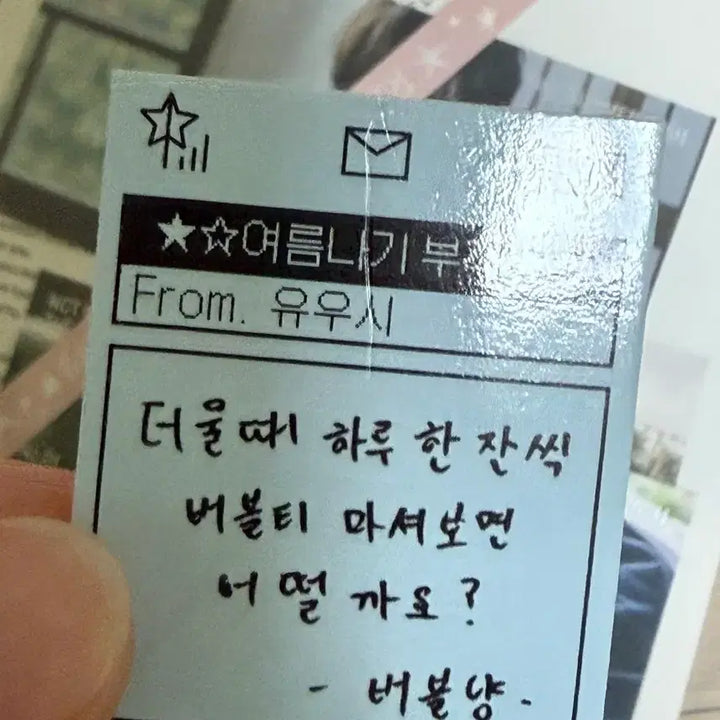 ★☆여름나기 부
From. 유우시
더울때 하루 한 잔씩
버블티 마셔보면
어떨까요?
- 버블냥.